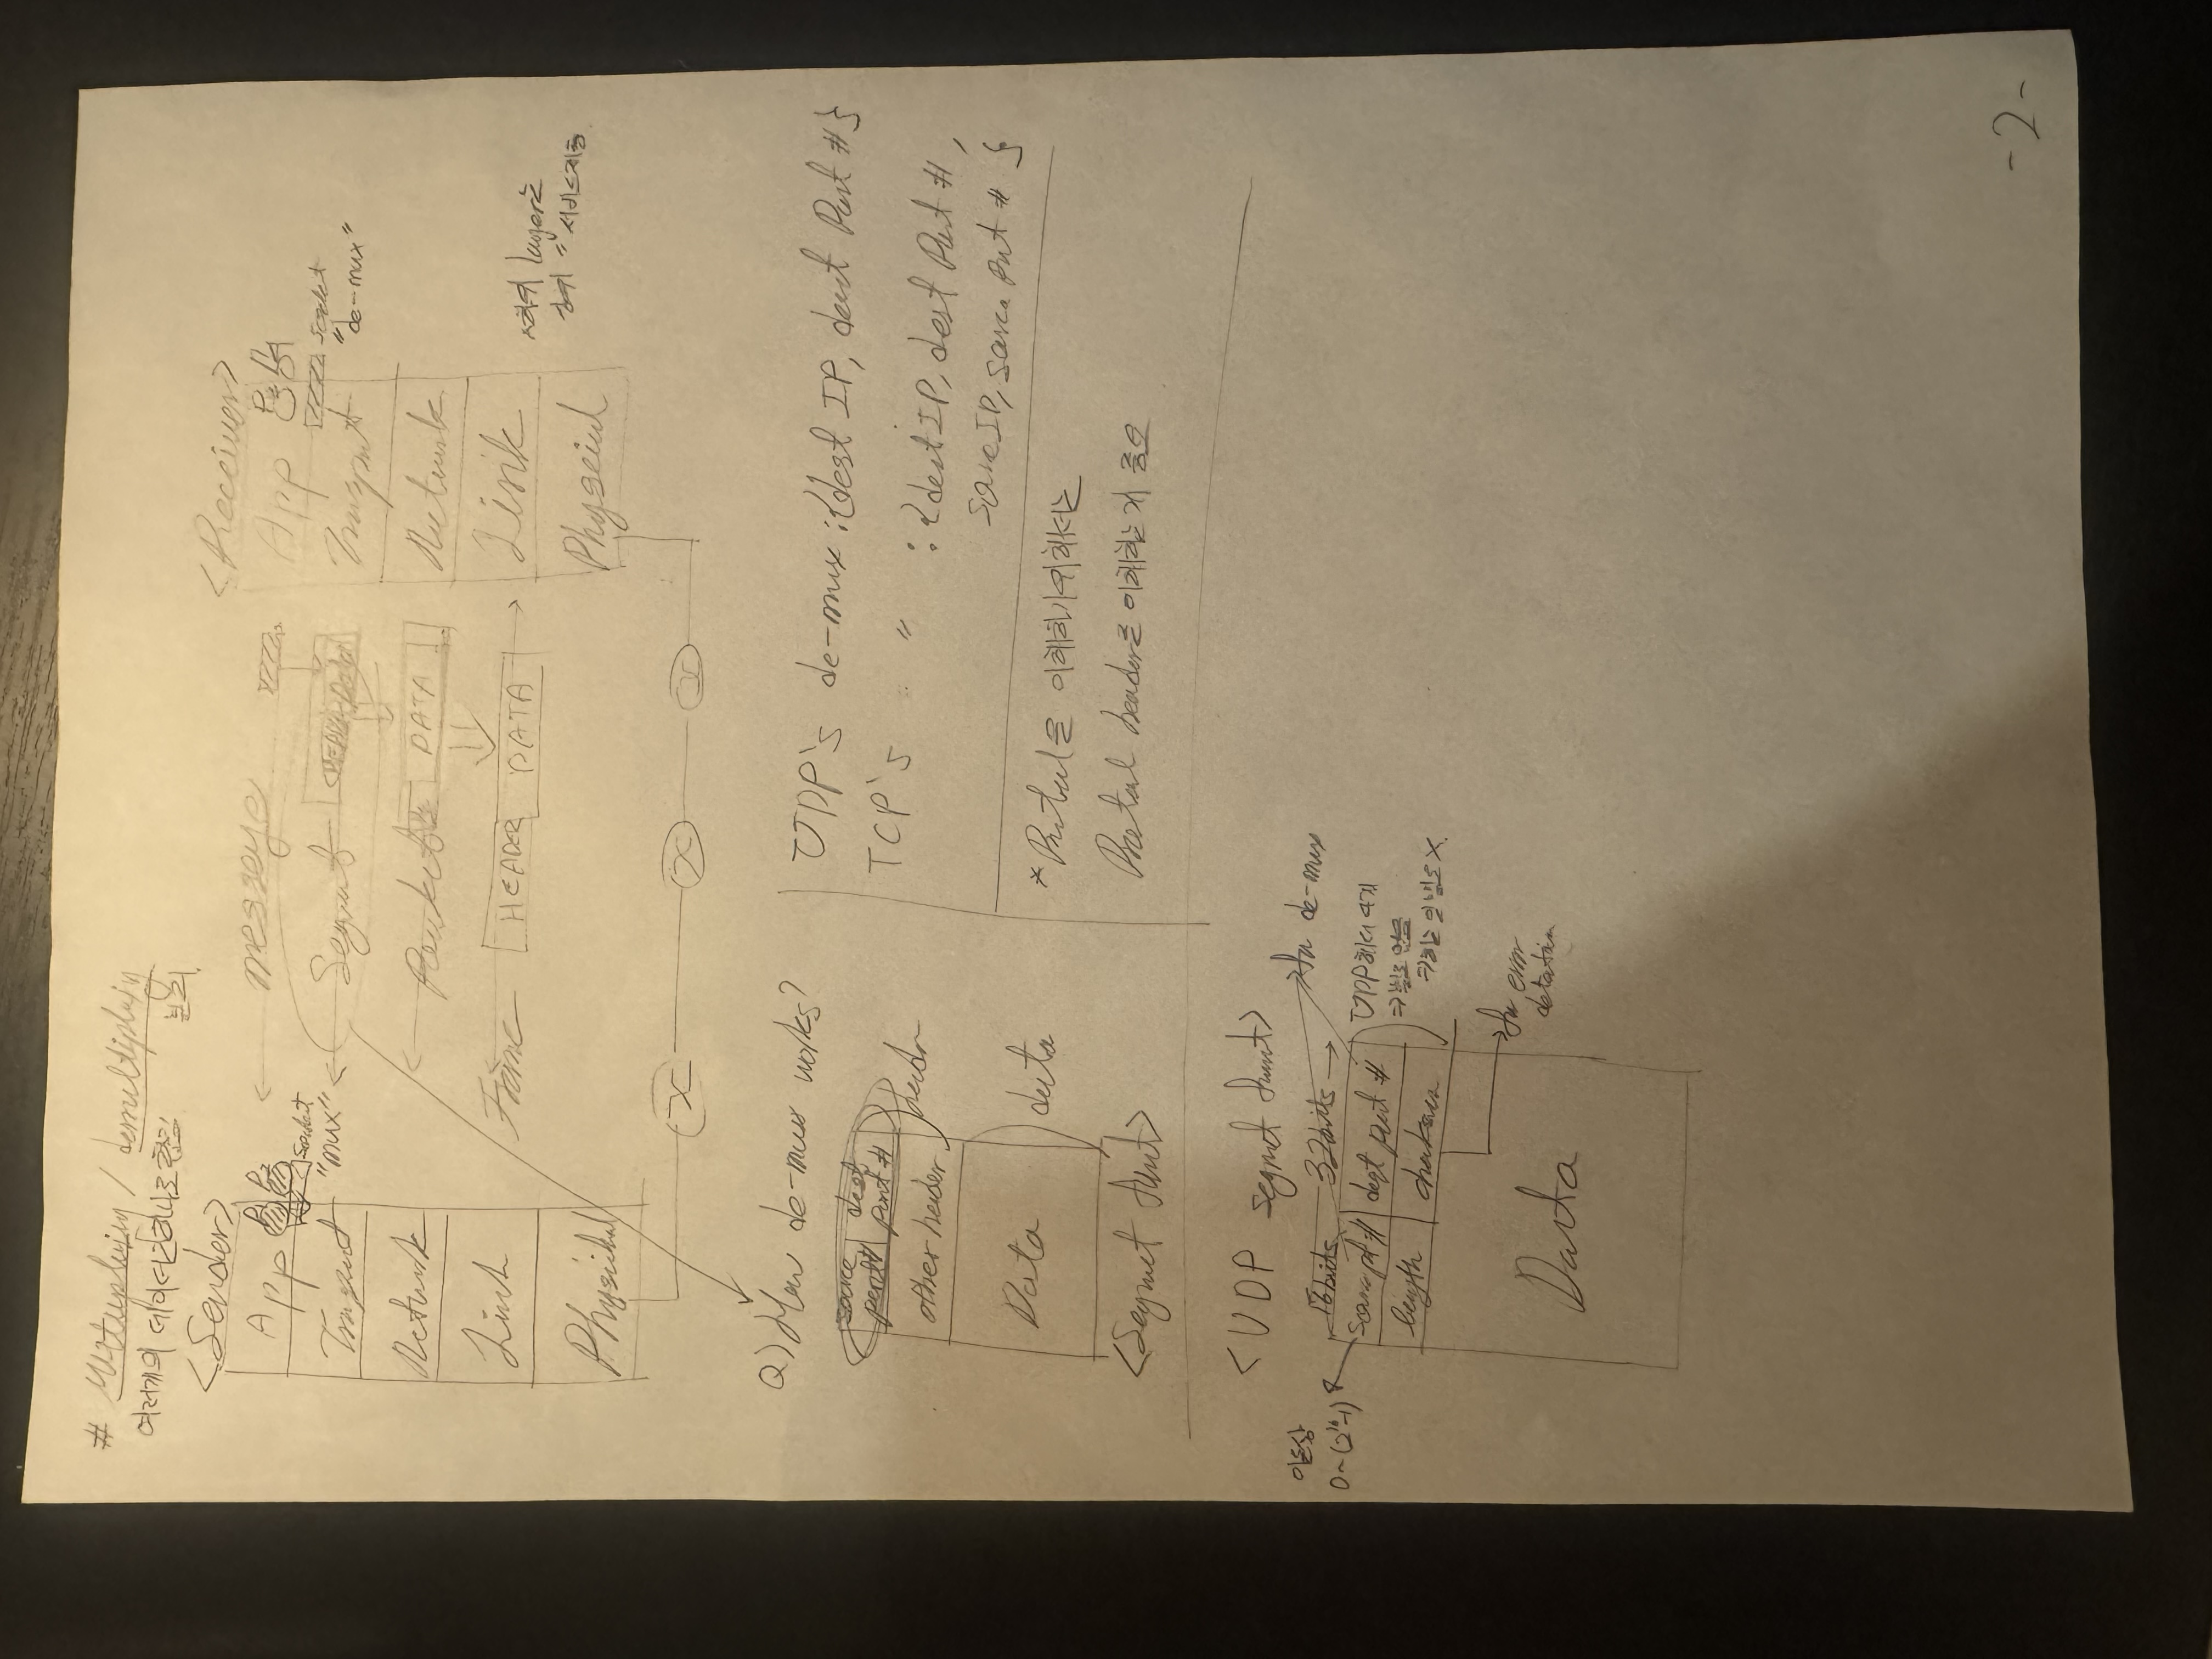 # Multiplexing / demultiplexing
여러개의 데이터를 하나로 합침
분리
<Sender>
<Receiver>
App P1 P2
socket
Transport "mux"
Network
Link
Physical
message
Segment HEADER DATA
Packet DATA
Frame HEADER DATA
App P3 P4
socket
Transport "de-mux"
Network
Link
Physical
*하위 layer는
상위 " 서비스제공
Q) How de-mux works?
source port# dest port #
other header
header
Data
data
<Segment format>
UDP's de-mux : {dest IP, dest Port #}
TCP's " : {dest IP, dest Port #,
source IP, source Port # }
* Protocol을 이해하기위해서는
Protocol header를 이해하는게 중요
<UDP segment format>
이론상
0~(2¹⁶-1)
16bits 32bits
for de-mux
source pt # dest port #
length checksum
UDP헤더 4개
=>별로 없음
하는 일 별로 X.
for error
detection
Data
-2-